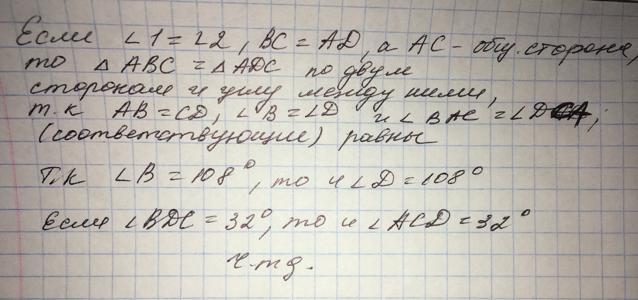 Если ∠1 = ∠2, BC = AD, а AC - общ. сторона,
то △ ABC = △ ADC по двум
сторонам и углу между ними,
т.к AB = CD, ∠B = ∠D и ∠BAC = ∠DCA;
(соответствующие) равны
Т.к ∠B = 108°, то и ∠D = 108°
Если ∠BDC = 32°, то и ∠ACD = 32°
ч.т.д.